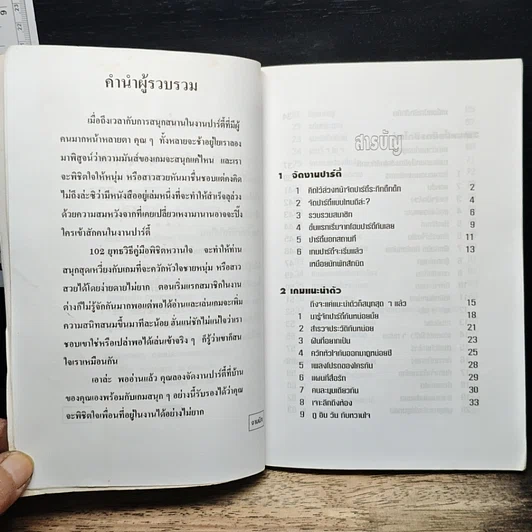 คำนำผู้รวบรวม
เมื่อถึงเวลากับการสนุกสนานในงานปาร์ตี้ที่มีผู้
คนมากหน้าหลายตา คุณ ๆ ทั้งหลายจะช้าอยู่ใยเราลอง
มาพิสูจน์ว่าความมันส์ของเกมจะสนุกแค่ไหน และเรา
จะพิชิตใจให้หนุ่ม หรือสาวสวยหันมาชื่นชอบแค่คงคิด
ไม่ถึงล่ะซิว่ามีหนังสืออยู่เล่มหนึ่งที่จะทำให้สำเร็จลุล่วง
ด้วยความสมหวังจากที่เคยเปลี่ยวเหงามานานอาจจะปิ๊ง
ใครเข้าสักคนในงานปาร์ตี้
102 ยุทธวิธีคู่มือพิชิตหวานใจ จะทำให้ท่าน
สนุกสุดเหวี่ยงกับเกมที่จะคว้าหัวใจชายหนุ่ม หรือสาว
สวยได้โดยง่ายดายไม่ยาก ตอนเริ่มแรกสมาชิกในงาน
ต่างก็ไม่รู้จักกันมากพอแต่พอได้อ่านและเล่นเกมจะเพิ่ม
ความสนิทสนมขึ้นมาทีละน้อย ลั่นแน่ชักไม่แน่ใจว่าเรา
ชอบเขาใช่หรือเปล่าพอได้เล่นเข้าจริง ๆ ก็รู้ว่าเขาก็สน
ใจเราเหมือนกัน
เอาล่ะ พออ่านแล้ว คุณลองจัดงานปาร์ตี้ที่บ้าน
ของคุณเองพร้อมกับเกมสนุก ๆ อย่างนี้รับรองได้ว่าคุณ
จะพิชิตใจเพื่อนที่อยู่ในงานได้อย่างไม่ยาก
สารบัญ
1 จัดงานปาร์ตี้
1 คิดไว้ล่วงหน้าจัดปาร์ตี้ระทึกเด็กเด็ก 2
2 จัดปาร์ตี้แบบไหนดีล่ะ? 4
3 รวบรวมสมาชิก 6
4 ดินแรกเริ่มจากโฮมปาร์ตี้กันเลย 6
5 ปาร์ตี้นอกสถานที่ 9
6 เกมปาร์ตี้จะเริ่มแล้ว 11
เหนื่อยนักพักสักนิด 13
2 เกมแนะนำตัว
ถึงจะแค่แนะนำตัวก็สนุกสุด ๆ แล้ว 15
1 มารู้จักปาร์ตี้กันหน่อยมั้ย 18
2 สำรวจประวัติกันหน่อย 21
3 ฝันที่อยากเป็น 23
4 ควักหัวใจกันออกมาดูหน่อยซิ 25
5 เพลงโปรดของใครกัน 28
6 แผนที่สื่อรัก 29
7 คนละมุมเดียวกัน 30
8 เจาะลึกถึงห้อง 33
9 ดู ยิน วัน กับหวานใจ